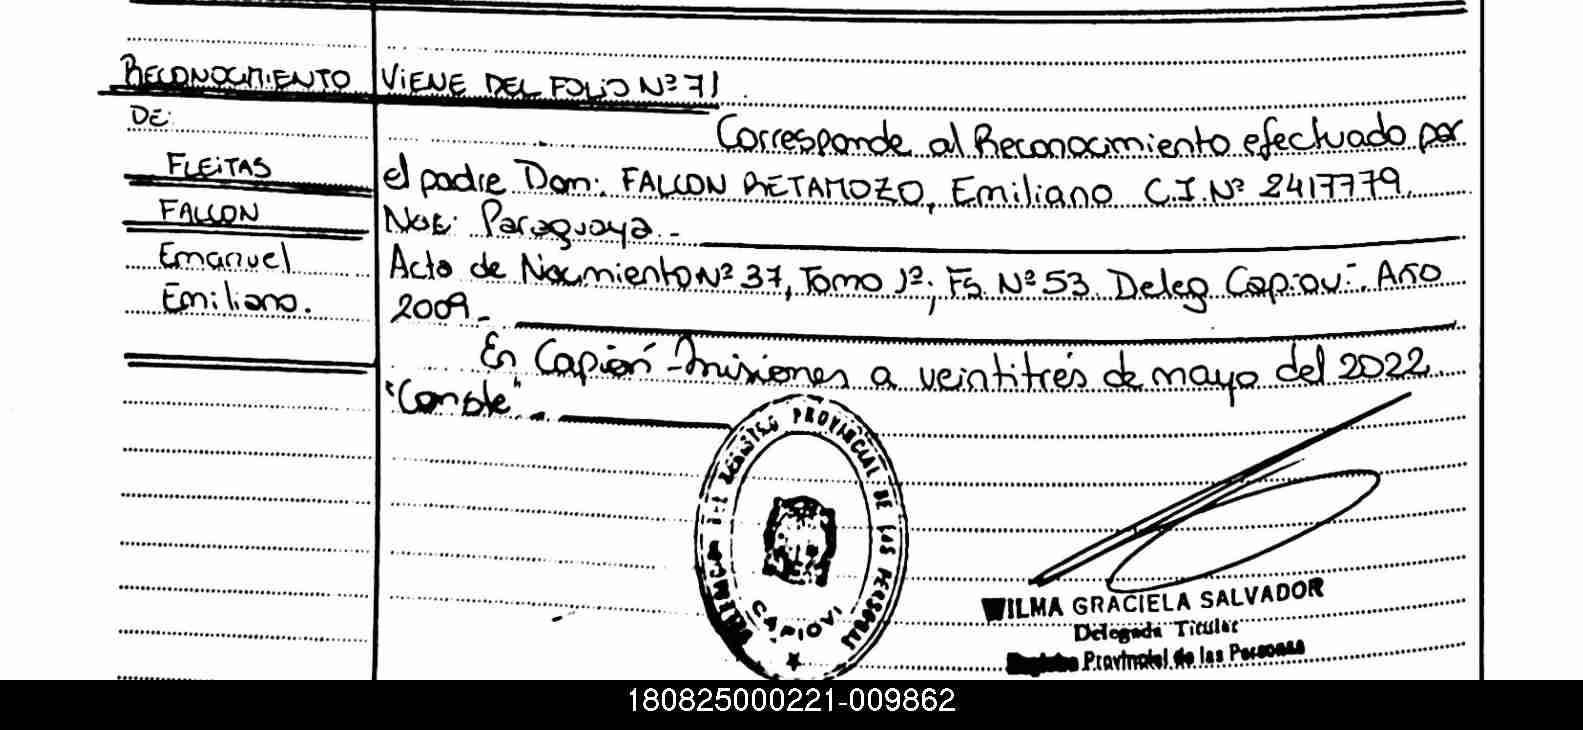 RECONOCIMIENTO
DE:
FLEITAS
FALCON
Emanuel
Emiliano.
VIENE DEL FOLIO Nº 71
Corresponde al Reconocimiento efectuado por
el padre Dom: FALCON RETAMOZO, Emiliano C.I.Nº 2417779.
Nac: Paraguaya.-
Acta de Nacimiento Nº 37, Tomo 1º, Fs. Nº 53. Deleg Capiovi. Año
2009.-
En Capioví-Misiones a veintitrés de mayo del 2022
"Conste".-
REGISTRO PROVINCIAL DE LAS PERSONAS
CAPIOVI
WILMA GRACIELA SALVADOR
Delegada Titular
Registro Provincial de las Personas
180825000221-009862